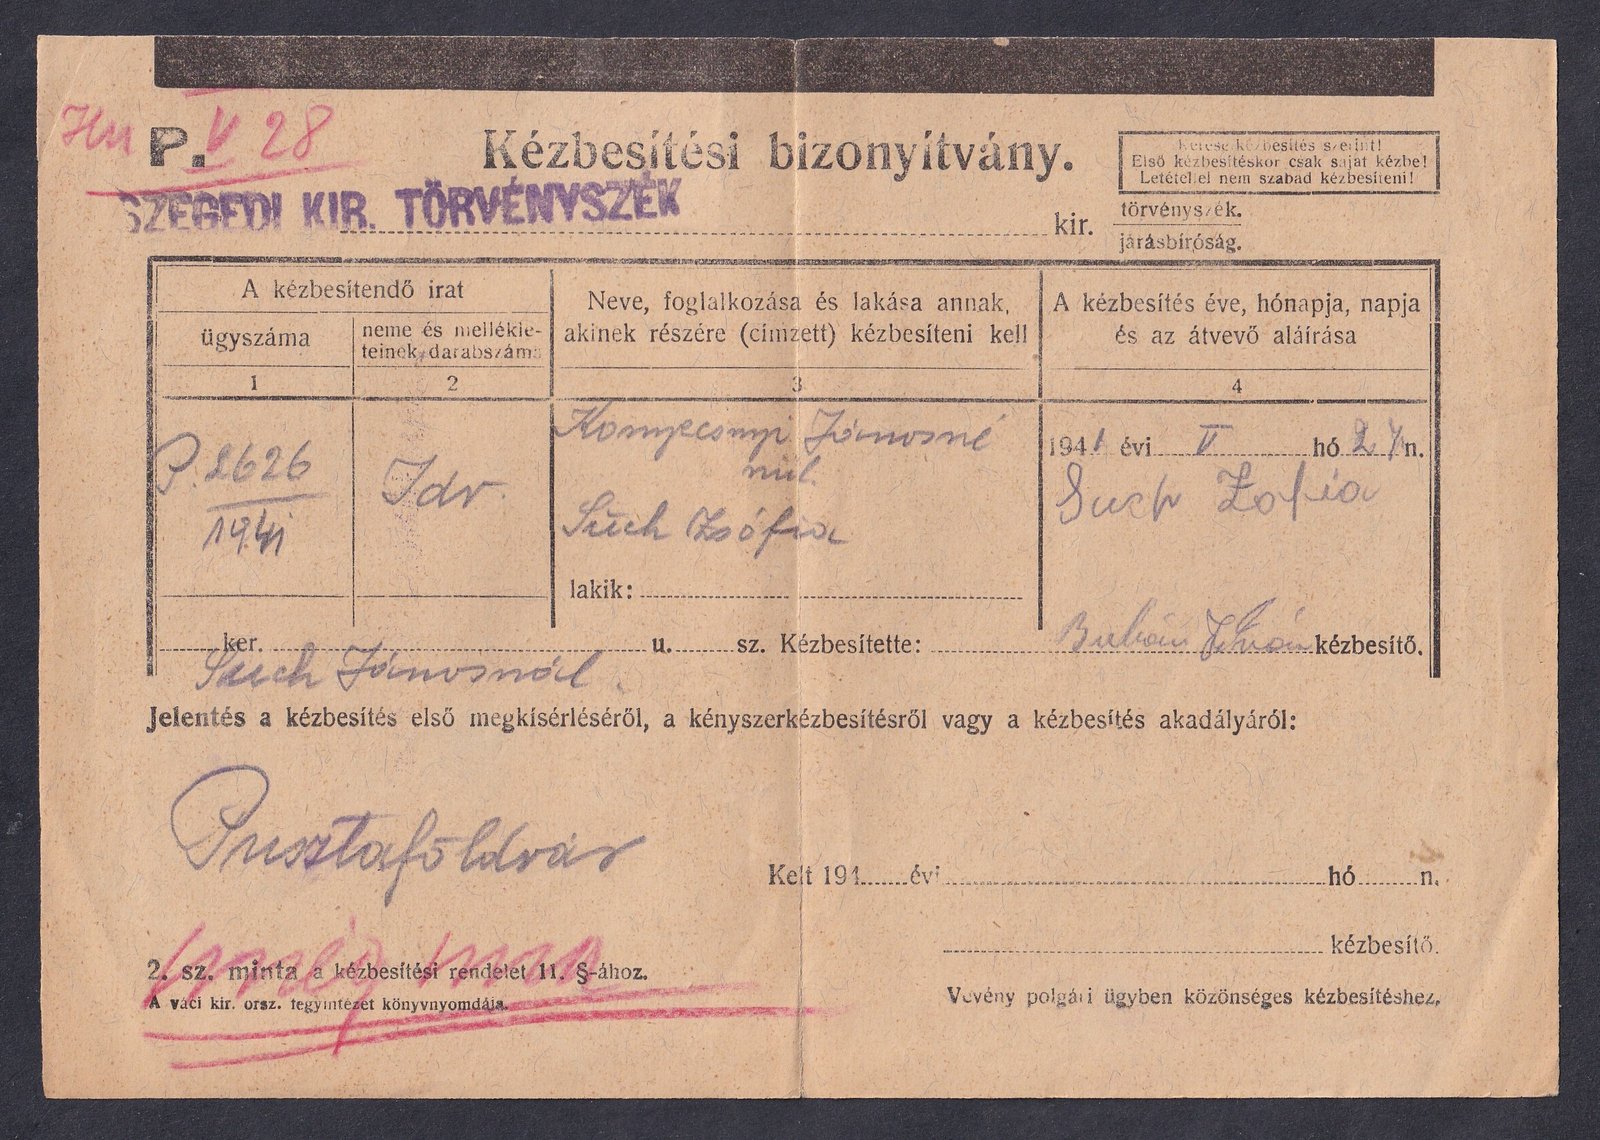 P. V 28
Kézbesítési bizonyítvány.
kézbesítés szerint!
Első kézbesítéskor csak saját kézbe!
Letétellel nem szabad kézbesíteni!
SZEGEDI KIR. TÖRVÉNYSZÉK
kir. törvényszék.
járásbíróság.
A kézbesítendő irat
ügyszáma
neme és mellékle-
teinek darabszáma
Neve, foglalkozása és lakása annak,
akinek részére (címzett) kézbesíteni kell
A kézbesítés éve, hónapja, napja
és az átvevő aláírása
1 2 3 4
P. 2626
1941
Idv.
Jánosné
Szűch Zsófia
lakik:
1941 évi V hó 2 n.
Such Zofia
ker. u. sz. Kézbesítette: kézbesítő.
Szuch Jánosnál.
Jelentés a kézbesítés első megkísérléséről, a kényszerkézbesítésről vagy a kézbesítés akadályáról:
Pusztaföldvár
Kelt 194 évi hó n.
kézbesítő.
2. sz. minta a kézbesítési rendelet 11. §-ához.
A váci kir. orsz. fegyintézet könyvnyomdája.
Vevény polgári ügyben közönséges kézbesítéshez.